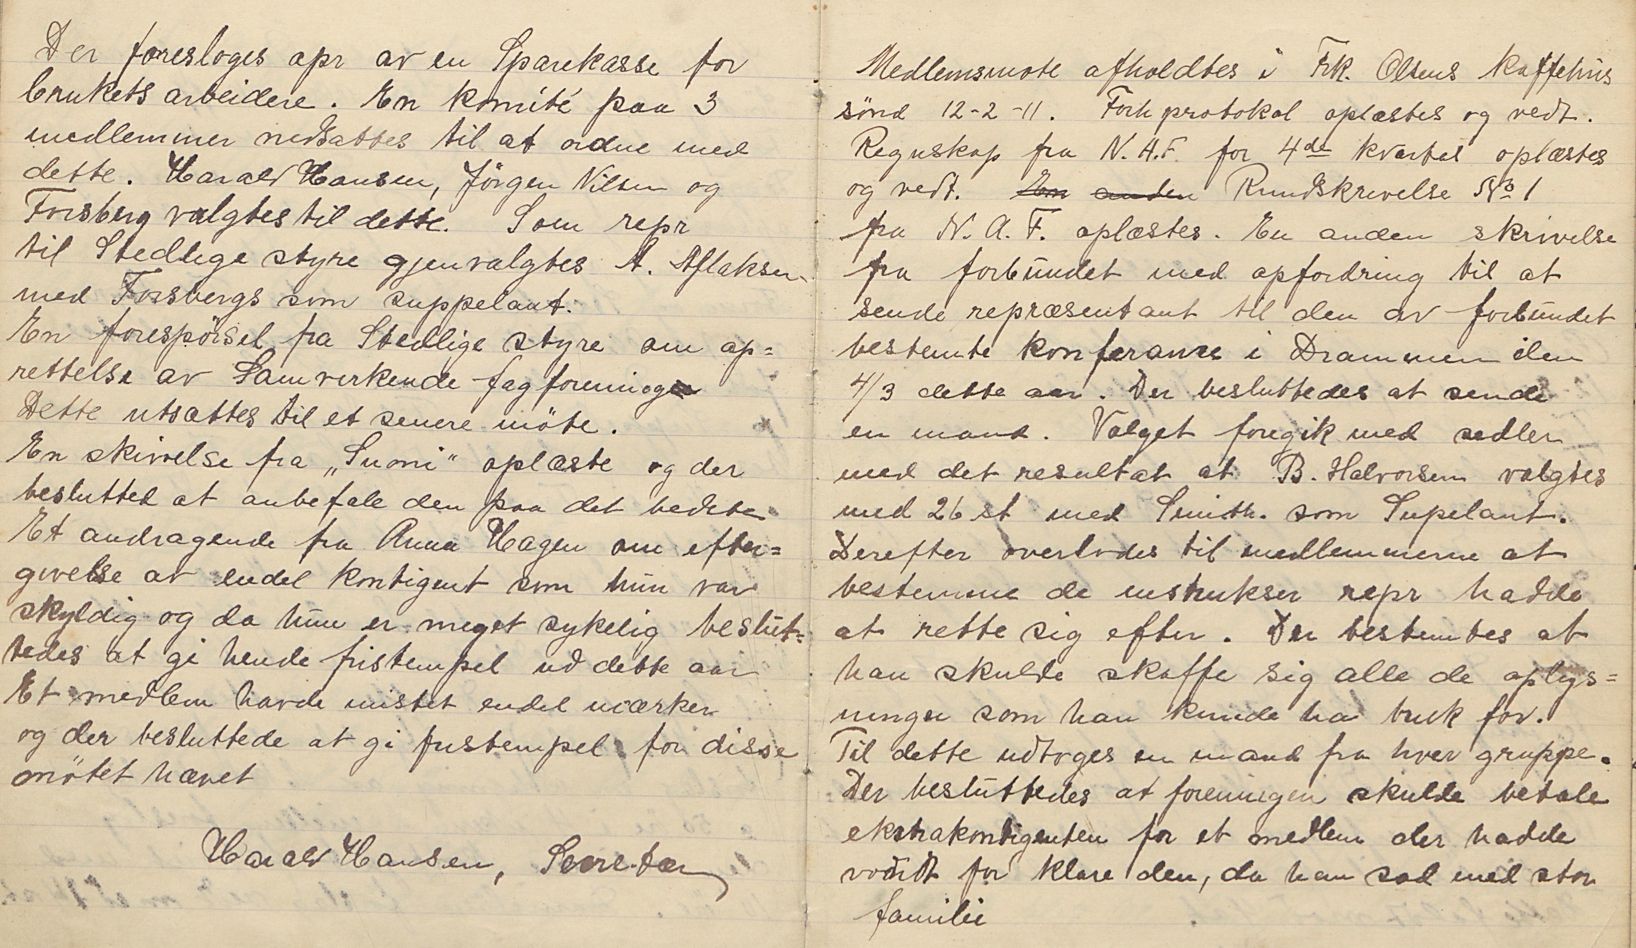 Der foresloges opr av en Sparekasse for
brukets arbeidere. En komité paa 3
medlemmer nedsattes til at ordne med
dette. Harald Hansen, Jörgen Nilsen og
Forsberg valgtes til dette. Som repr
til Stedlige styre gjenvalgtes A. Aflaksen
med Forsbergs som suppelant.
En forespörsel fra Stedlige styre om op=
rettelse av Samvirkende fagforening
Dette utsattes til et senere möte.
En skrivelse fra „Suomi“ oplæste og der
beslutted at anbefale den paa det bedste
Et andragende fra Anna Hagen om efter=
givelse av endel kontigent som hun var
skyldig og da hun er meget sykelig beslut=
tedes at gi hende fristempel ud dette aar
Et medlem havde mistet endel mærker
og der besluttede at gi fristempel for disse
mötet hævet
Harald Hansen, Secretær
Medlemsmote afholdtes i Frk. Olsens kaffehus
sönd 12-2-11. Forh protokol oplæstes og vedt.
Regnskap fra N.A.F. for 4de kvartal oplæstes
og vedt. En anden Rundskrivelse No 1
fra N.A.F. oplæstes. En anden skrivelse
fra forbundet med opfordring til at
sende repræsentant til den av forbundet
bestemte konferanse i Drammen den
4/3 dette aar. Der besluttedes at sende
en mand. Valget foregik med sedler
med det resultat at B. Halvorsen valgtes
med 26 st med Smith. som Supelant.
Derefter overlodes til medlemmerne at
bestemme de instrukser repr hadde
at rette sig efter. Der bestemtes at
han skulde skaffe sig alle de oplys=
ninger som han kunde ha bruk for.
Til dette udtoges en mand fra hver gruppe.
Der besluttedes at foreningen skulde betale
ekstrakontigenten for et medlem der hadde
vondt for klare den, da han sad med stor
familie